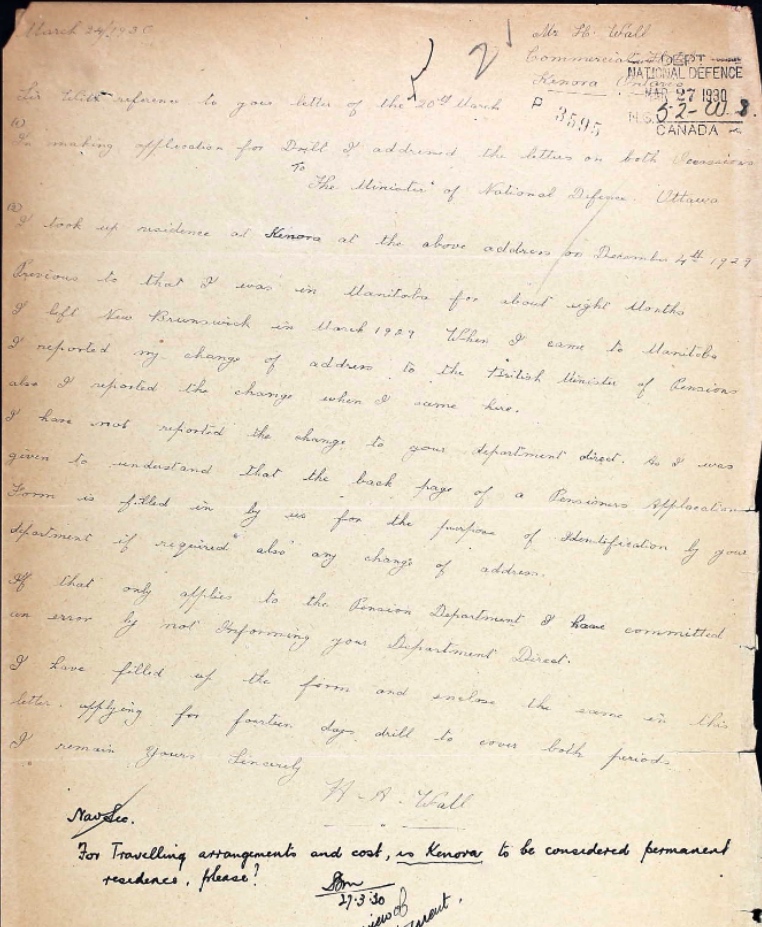 March 24/1930
Mr H. Wall
Commercial
Kenora Ontario
DEPT
NATIONAL DEFENCE
MAR 27 1930
P 3595
N.S. 52-W-8.
CANADA
Sir With reference to your letter of the 20th March
(1)
In making application for Drill I addressed the letters on both Occassions
To
The Minister of National Defence. Ottawa
(2)
I took up residence at Kenora at the above address on December 4th 1929
Previous to that I was in Manitoba for about eight Months
I left New Brunswick in March 1929 When I came to Manitoba
I reported my change of address to the British Minister of Pensions
also I reported the change when I came here.
I have not reported the change to your department direct. As I was
given to understand that the back page of a Pensioners Application
Form is filled in by us for the purpose of Identification by your
department if required" also any change of address.
If that only applies to the Pension Department I have committed
an error by not Informing your Department Direct.
I have filled up the form and enclose the same in this
letter. applying for fourteen days drill to cover both periods.
I remain Yours Sincerely
H. A. Wall
Nav Sec.
For Travelling arrangements and cost, is Kenora to be considered permanent
residence, please?
27.3.30
view of